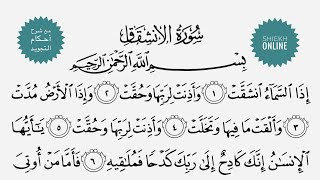 مع شرح
أحكام
التجويد
سُورَةُ الانْشِقَاقِ
SHIEKH
ONLINE
بِسْمِ اللَّهِ الرَّحْمَٰنِ الرَّحِيمِ
إِذَا ٱلسَّمَآءُ ٱنشَقَّتْ ١ وَأَذِنَتْ لِرَبِّهَا وَحُقَّتْ ٢ وَإِذَا ٱلْأَرْضُ مُدَّتْ
٣ وَأَلْقَتْ مَا فِيهَا وَتَخَلَّتْ ٤ وَأَذِنَتْ لِرَبِّهَا وَحُقَّتْ ٥ يَٰٓأَيُّهَا
ٱلْإِنسَٰنُ إِنَّكَ كَادِحٌ إِلَىٰ رَبِّكَ كَدْحًا فَمُلَٰقِيهِ ٦ فَأَمَّا مَنْ أُوتِىَ